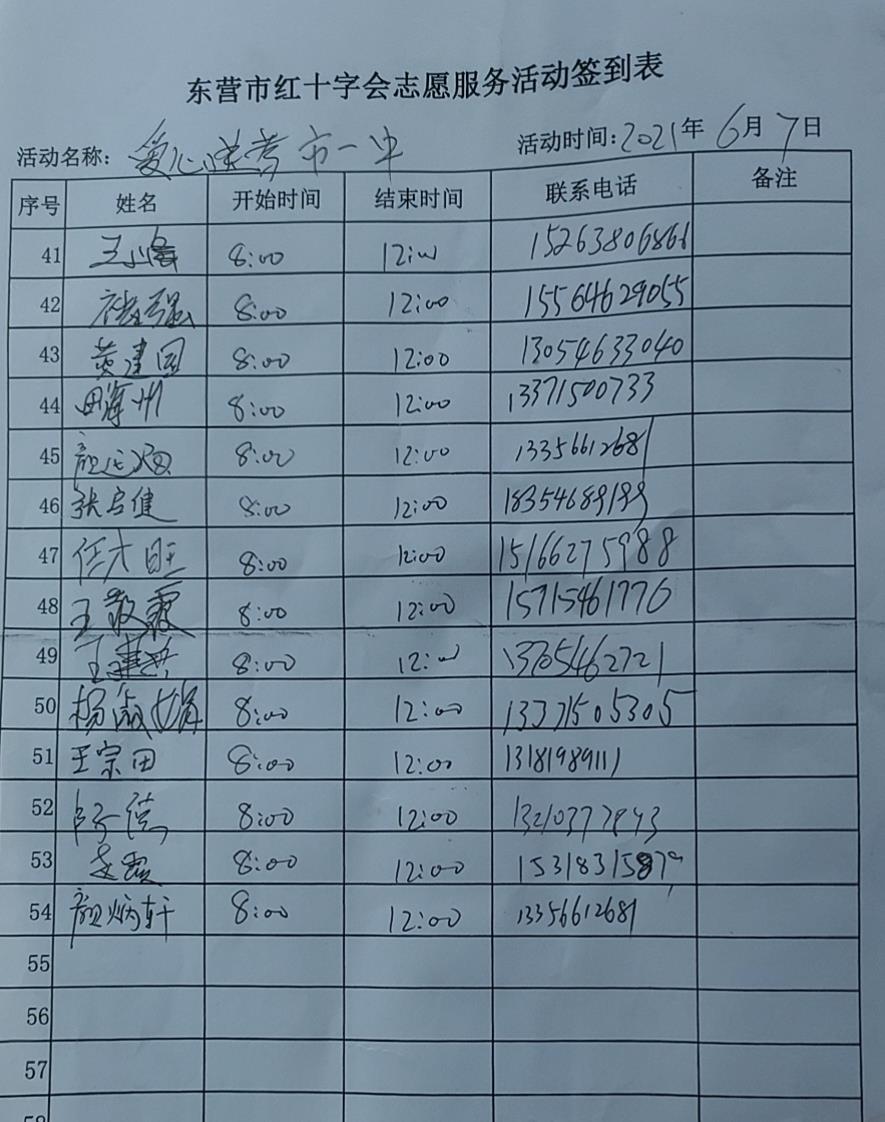 东营市红十字会志愿服务活动签到表
活动名称: 爱心送考 市一中 活动时间:2021年6月7日
序号 姓名 开始时间 结束时间 联系电话 备注
41 王 8:00 12:00 15263806861
42 强 8:00 12:00 15564629055
43 黄建国 8:00 12:00 13054633040
44 田海州 8:00 12:00 13371500733
45 颜 8:00 12:00 13356612681
46 张启健 8:00 12:00
47 任大旺 8:00 12:00 15166275988
48 王敬霞 8:00 12:00 15715461776
49 王建 8:00 12:00 13705462721
50 杨淑娟 8:00 12:00 13371505305
51 王宗田 8:00 12:00 13181989111
52 8:00 12:00
53 霞 8:00 12:00
54 颜炳轩 8:00 12:00 13356612681
55
56
57
58